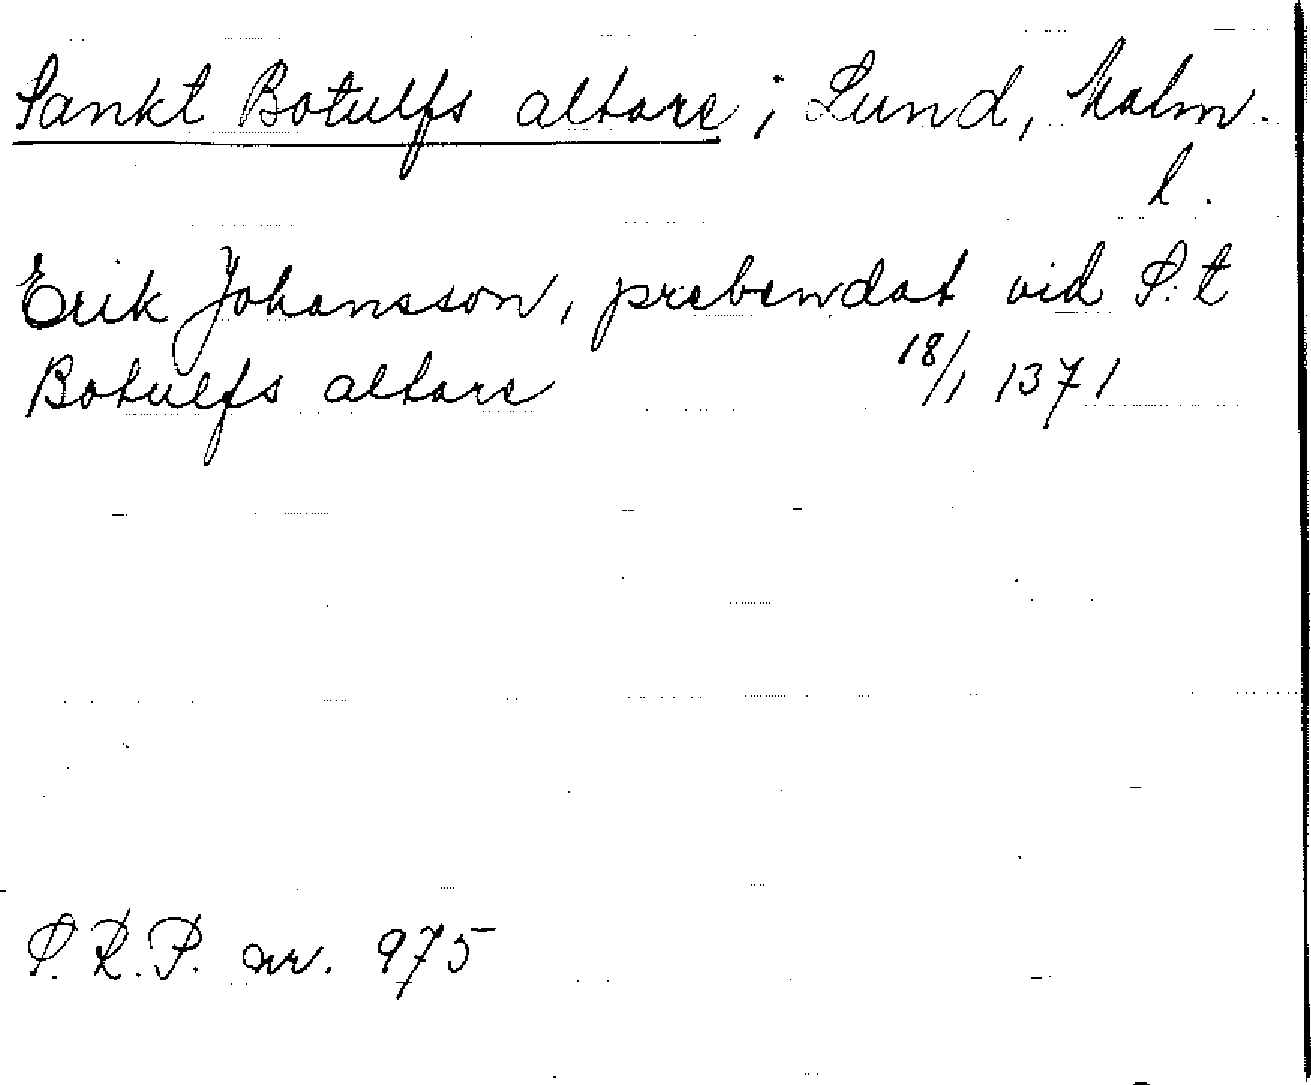 Sankt Botulfs altare; Lund, Malm.
l.
Erik Johansson, prebendat vid S:t
Botulfs altare 18/1 1371
S.R.P. nr. 975